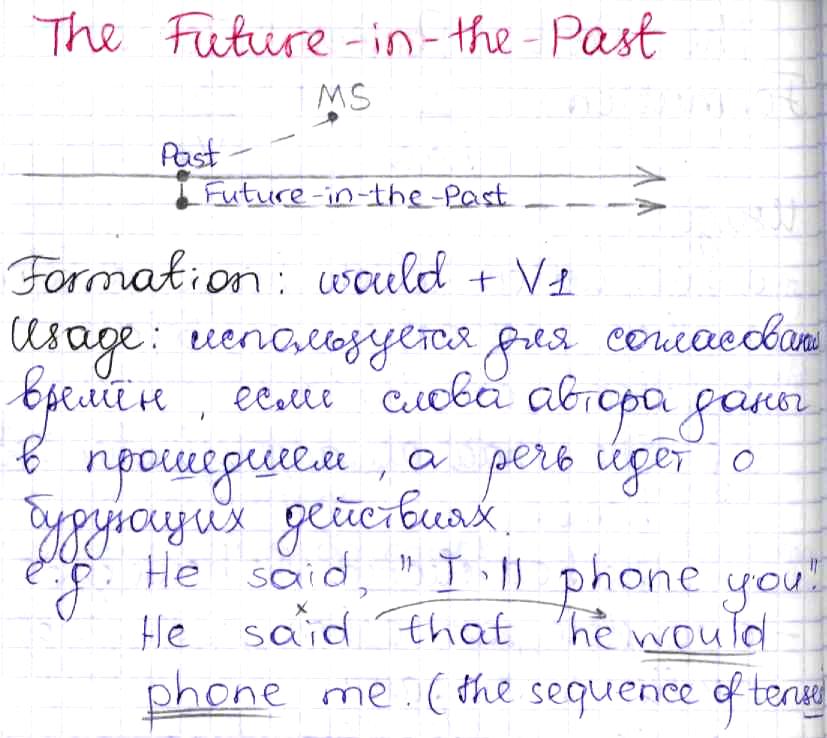 The Future-in-the-Past
MS
Past
Future-in-the-Past
Formation: would + V1
Usage: используется для согласования
времён, если слова автора даны
в прошедшем, а речь идёт о
будующих действиях.
e.g. He said, "I'll phone you".
He said that he would
phone me. (the sequence of tenses